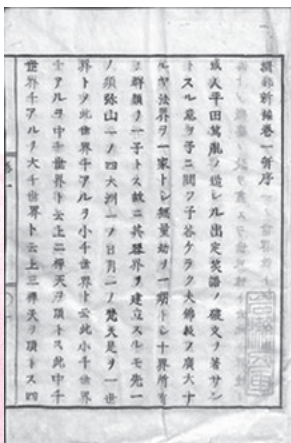 邪新 卷一并序
或人平田篤胤ノ造レル出定笑語ノ破文ヲ著サン
トスル意ヲ予ニ問フ予答ケラク夫佛教ノ廣大ナ
ルヤ法界ヲ一家トシ無量劫ヲ一期トシ十界所有
ノ群類ヲ一子トス故ニ其器界ヲ建立スルモ先一
ノ須弥山一ノ四大洲一ノ日月一ノ梵天是ヲ一世
界トシ此世界千アルヲ小千世界ト云此小千世界
千アルヲ中千世界ト云上二禅天ヲ頂トス此中千
世界千アルヲ大千世界ト云上三禅天ヲ頂トス四